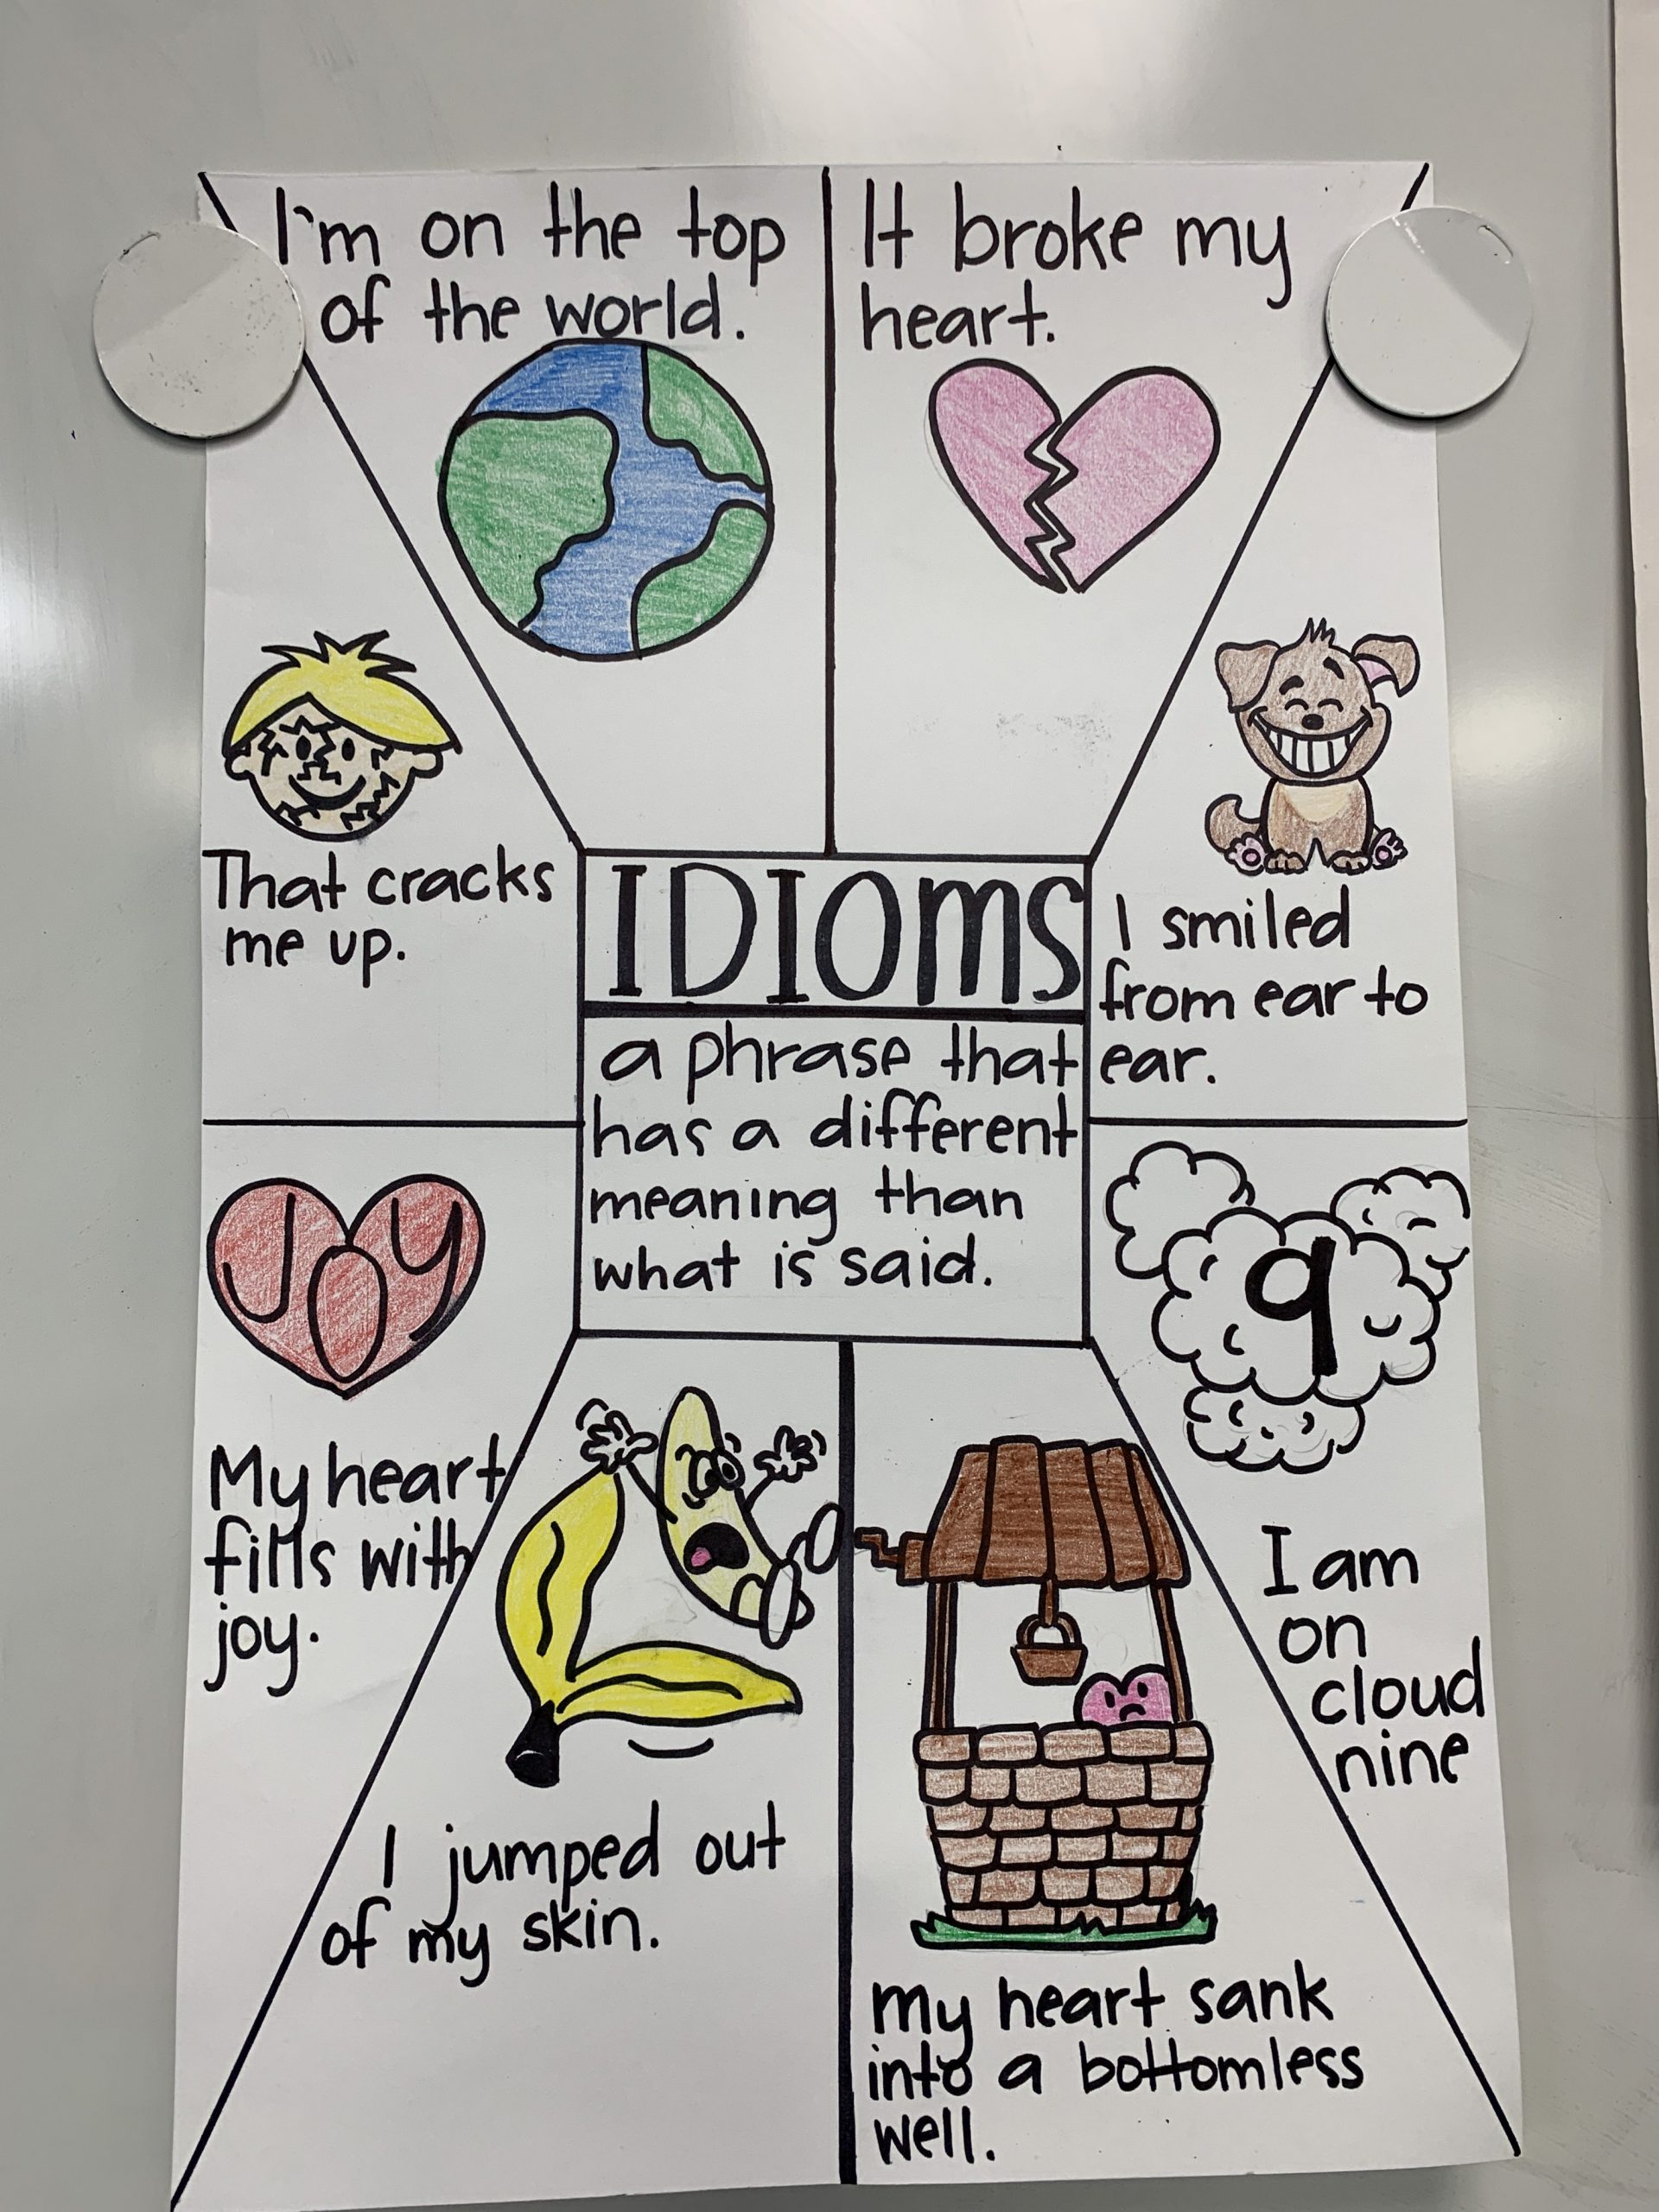 I'm on the top
of the world.
It broke my
heart.
That cracks
me up.
IDIOMS
a phrase that
has a different
meaning than
what is said.
I smiled
from ear to
ear.
JOY
My heart
fills with
joy.
9
I am
on
cloud
nine
I jumped out
of my skin.
my heart sank
into a bottomless
well.